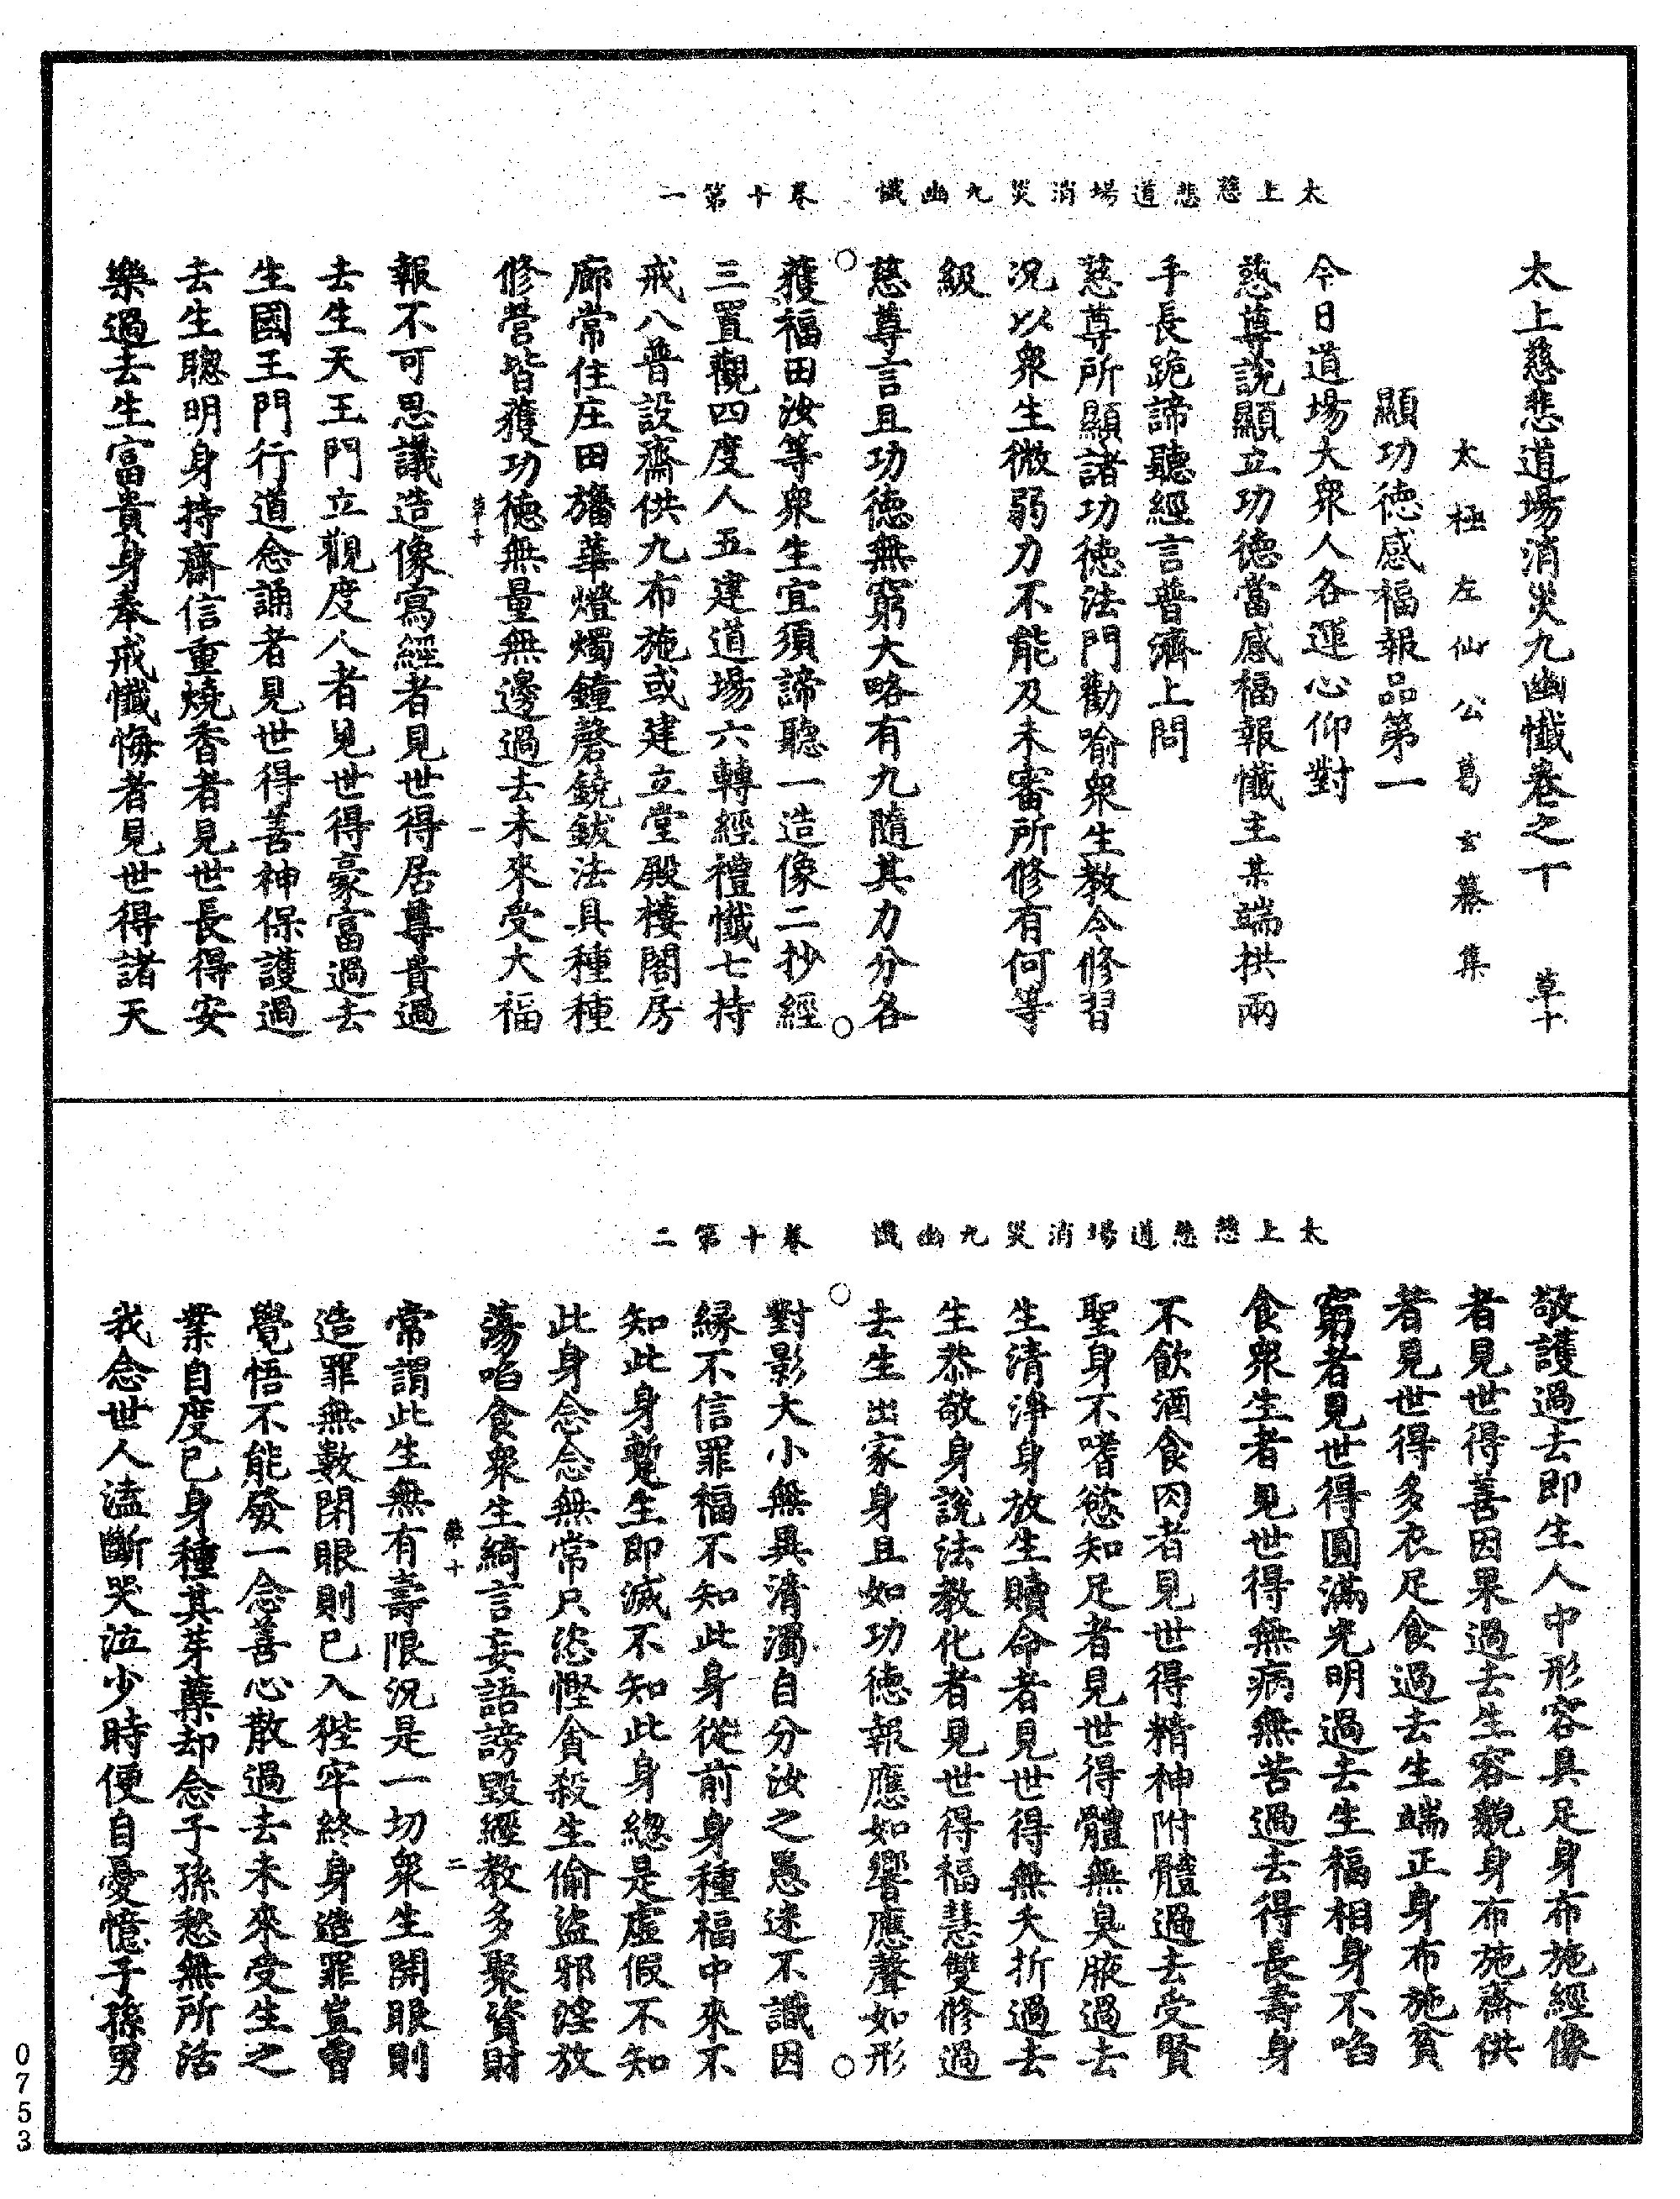 太上慈悲道場消災九幽懺　卷十第一
太上慈悲道場消災九幽懺卷之十　草十
太極左仙公葛玄纂集
顯功德感福報品第一
今日道場大衆人各運心仰對
慈尊說顯立功德當感福報懺主某端拱兩
手長跪諦聽經言普濟上問
慈尊所顯諸功德法門勸喻衆生教令修習
況以衆生微弱力不能及未審所修有何等
級
慈尊言且功德無窮大略有九隨其力分各
獲福田汝等衆生宜須諦聽一造像二抄經
三置觀四度人五建道場六轉經禮懺七持
戒八普設齋供九布施或建立堂殿樓閣房
廊常住庄田旛華燈燭鐘磬鐃鈸法具種種
修營皆獲功德無量無邊過去未來受大福
草十　一
報不可思議造像寫經者見世得居尊貴過
去生天王門立觀度人者見世得豪富過去
生國王門行道念誦者見世得善神保護過
去生聰明身持齋信重燒香者見世長得安
樂過去生富貴身奉戒懺悔者見世得諸天
太上慈悲道場消災九幽懺　卷十第二
敬護過去即生人中形容具足身布施經像
者見世得善因果過去生容貌身布施齋供
者見世得多衣足食過去生端正身布施貧
窮者見世得圓滿光明過去生福相身不啗
食衆生者見世得無病無苦過去得長壽身
不飲酒食肉者見世得精神附體過去受賢
聖身不嗜慾知足者見世得體無臭腋過去
生清淨身放生贖命者見世得無夭折過去
生恭敬身說法教化者見世得福慧雙修過
去生出家身且如功德報應如響應聲如形
對影大小無異清濁自分汝之愚迷不識因
緣不信罪福不知此身從前身種福中來不
知此身蹔生即滅不知此身總是虛假不知
此身念念無常只恣慳貪殺生偷盜邪淫放
蕩啗食衆生綺言妄語謗毀經教多聚資財
草十　二
常謂此生無有壽限況是一切衆生開眼則
造罪無數閉眼則已入狴牢終身造罪豈曾
覺悟不能發一念善心散過去未來受生之
業自度已身種其芽蘖却念子孫愁無所活
我念世人溘斷哭泣少時便自憂憶子孫男
0753